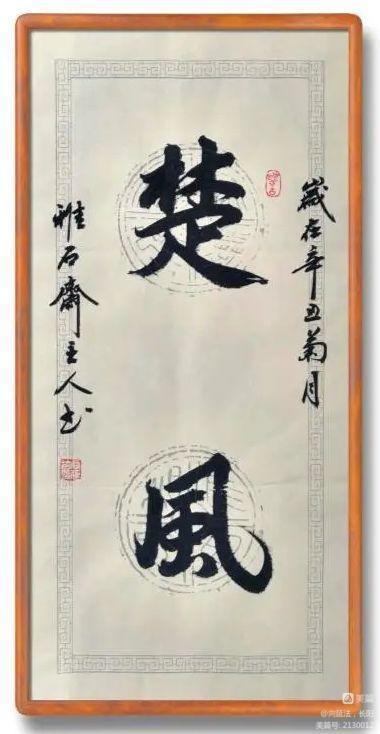 歲在辛丑菊月
楚風
雅石齋主人书
美篇
长阳
美篇号: 2130012